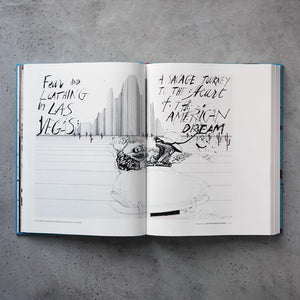 Fear AND
LOATHING
IN LAS
VEGAS:
A SAVAGE JOURNEY
TO THE HEART
OF THE
AMERICAN
DREAM